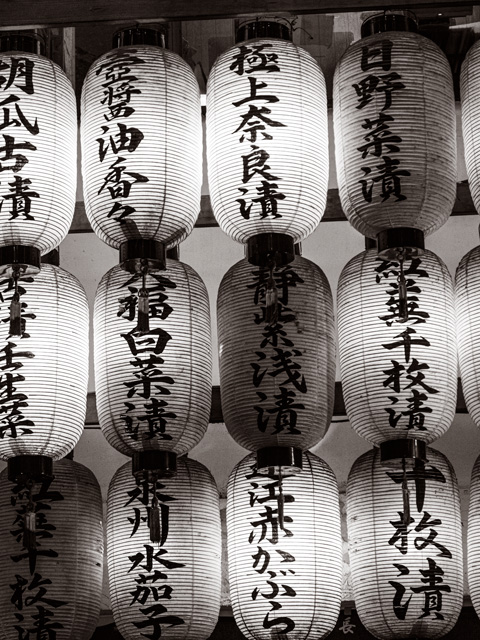 日野菜漬
極上奈良漬
壺醤油香々
胡瓜古漬
紅蕪千枚漬
静紫浅漬
大福白菜漬
古漬壬生菜
千枚漬
近江赤かぶら
泉州水茄子
紅蕪千枚漬